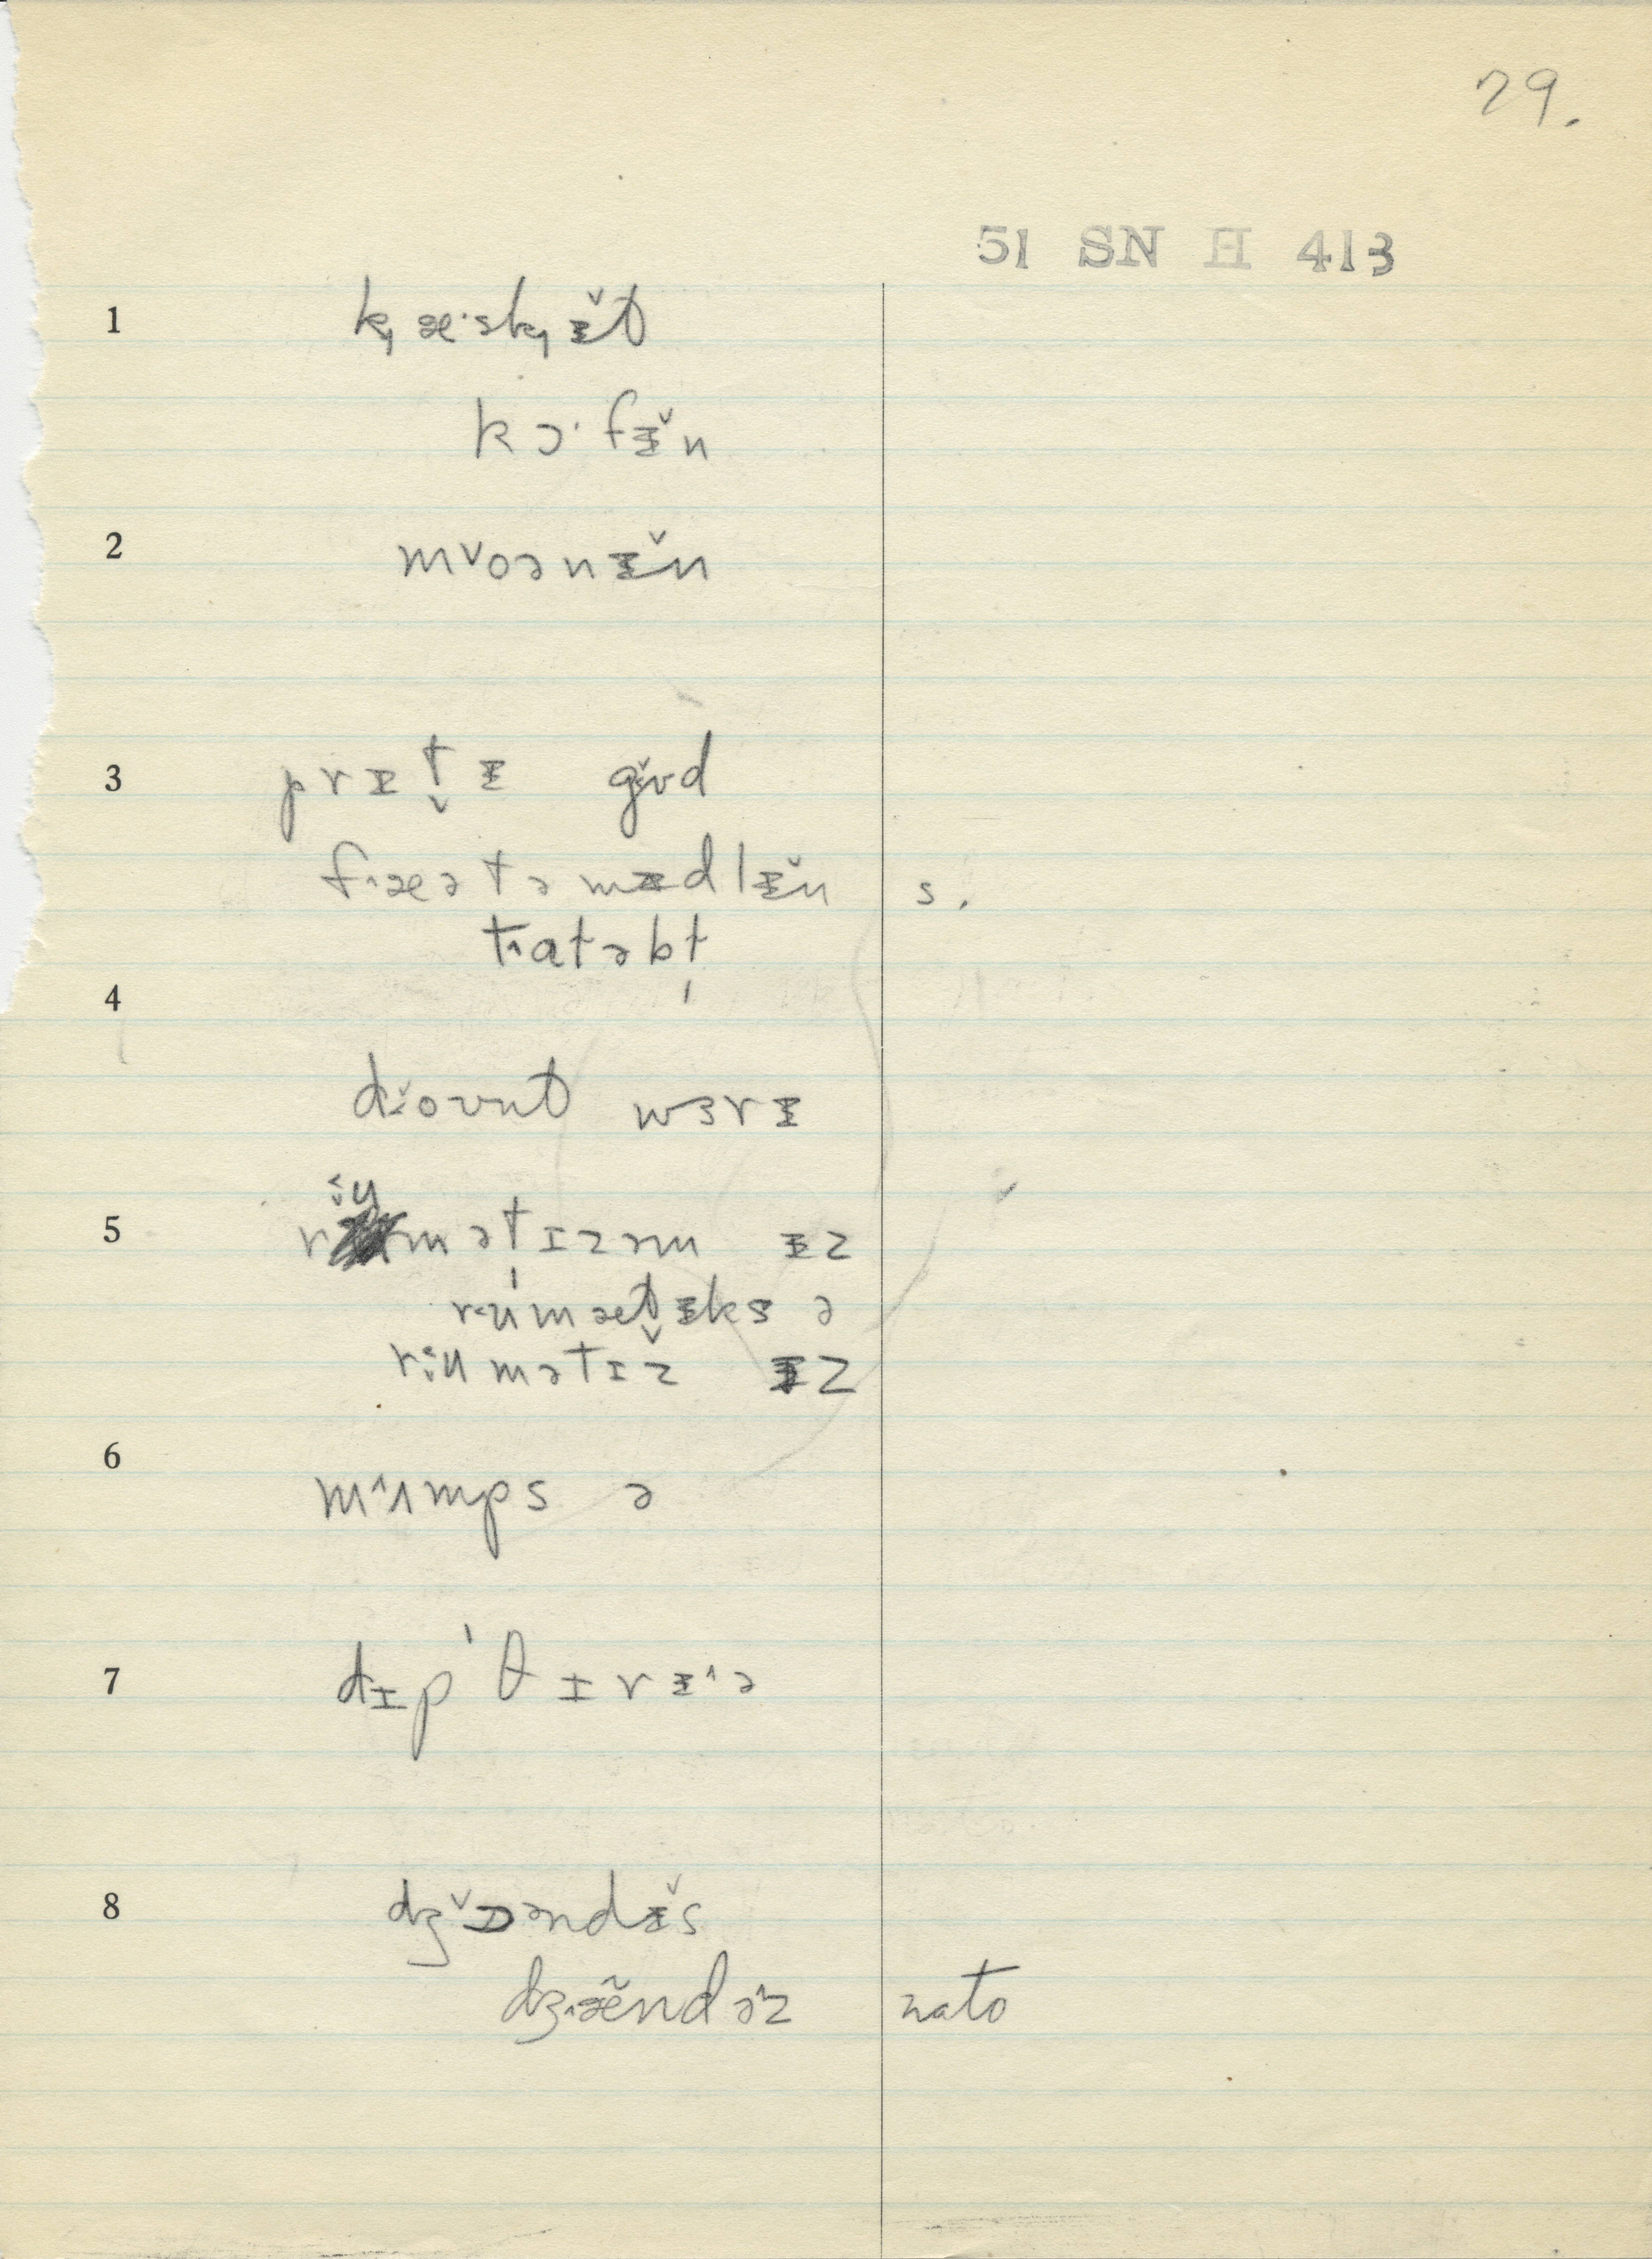 29.
51 SN H 413
1 k̡æ·sk̡ᵻ̌t
kɔ·fᵻ̌n
2 mˇoənᵻ̌n
3 prᵻt̬ᵻ gɪ̌ʊd
fɪ^æətəmᵻdlᵻ̌n s.
tɪ^atəbt̩
4
dɪ̌oʊnt wɜrᵻ
5 rɪ̌umət̩ɪzəm ᵻz
rumæt̬ᵻks ə
rɪumətɪz ᵻz
6 m^ʌmps ə
7 dɪp'θɪrᵻ^ə
8 dʒˇɒəndᵻ̌s
dʒɪ^æ̃ndəˆz nato